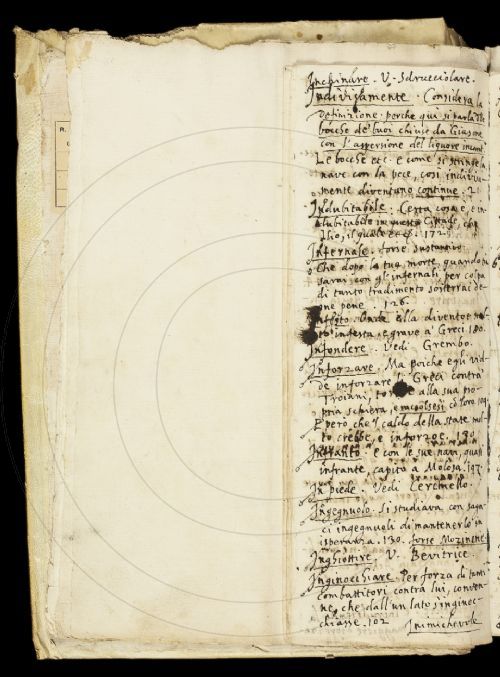 Inchinare. V. Sdrucciolare.
Indivisamente. Considera la
definizione. perche qui si parla
bocche de buoi chiuse da Giasone
con l'aspersione del liquore incant
Le bocche etc. e come si stringe la
nave con la pece, così indivisa-
mente diventano continue. 2
Indubitabile. Certa cosa è, e in-
dubitabile in questa Cittade, che
Ilio, il quale etc. 172.
Infernale. forse sustantivo
Che dopo la tua morte, quando tu
sarai con gli infernali, per colpa
di tanto tradimento sosterrai de-
gne pene. 126.
Infesto. Onde ella diventoe mol-
to infesta, e grave a' Greci 180.
Infondere. Vedi Grembo.
Inforzare. Ma poiche egli vid-
de inforzare li Greci contra
Troiani, tornoe alla sua pro-
pria schiera, e raccolsesi co' loro
E però che 'l caldo della state mol-
to crebbe, e inforzoe.
Infranto. e con le sue navi, quasi
infrante, capitò a Molosa. 197.
In piede. Vedi Cercinello.
Ingegnuolo. Si studiava con saga-
ci ingegnuoli di mantenerlo in
isperanza. 130. forse
Inghiottire. V. Bevitrice.
Inginocchiare. Per forza di tanti
combattitori contra lui, conven-
ne, che dall'un lato s'inginoc-
chiasse. 102
Inimichevole